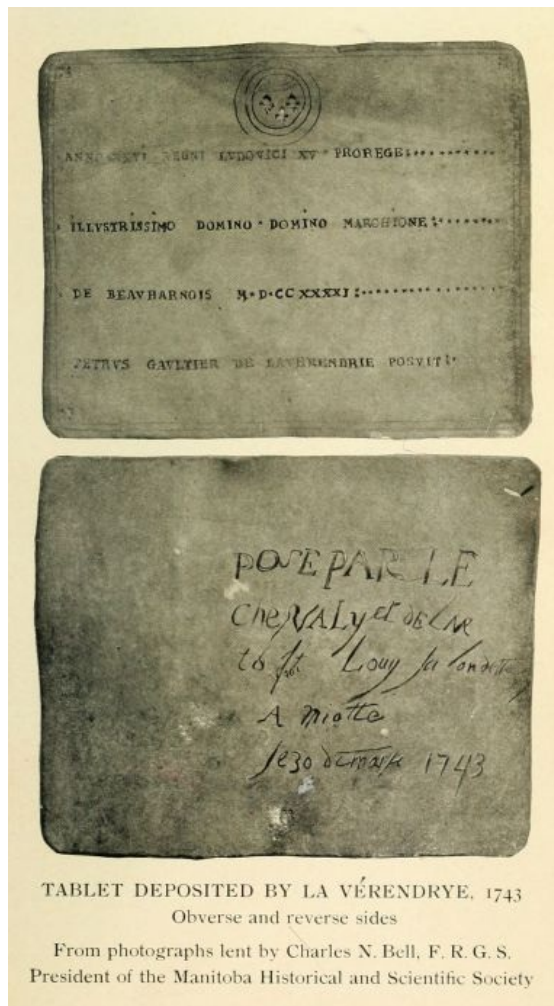 ANNO XXVI REGNI LVDOVICI XV PROREGE
ILLVSTRISSIMO DOMINO DOMINO MARCHIONE
DE BEAVHARNOIS M·D·CC XXXXI
PETRVS GAVLTIER DE LAVERENDRIE POSVIT
POSE PAR LE
CheVALyet DE LAR
to Louy la londette
A Miotte
le 30 de mars 1743
TABLET DEPOSITED BY LA VÉRENDRYE, 1743
Obverse and reverse sides
From photographs lent by Charles N. Bell, F. R. G. S.
President of the Manitoba Historical and Scientific Society